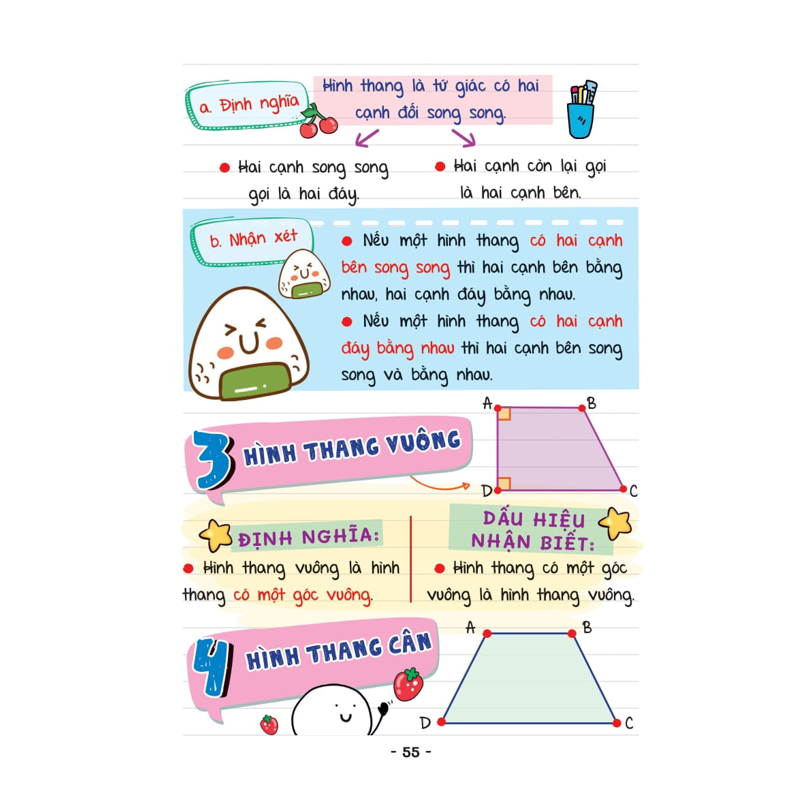 a. Định nghĩa
Hình thang là tứ giác có hai
cạnh đối song song.
Hai cạnh song song
gọi là hai đáy.
Hai cạnh còn lại gọi
là hai cạnh bên.
b. Nhận xét
Nếu một hình thang có hai cạnh
bên song song thì hai cạnh bên bằng
nhau, hai cạnh đáy bằng nhau.
Nếu một hình thang có hai cạnh
đáy bằng nhau thì hai cạnh bên song
song và bằng nhau.
3 HÌNH THANG VUÔNG
A B
D C
ĐỊNH NGHĨA:
Hình thang vuông là hình
thang có một góc vuông.
DẤU HIỆU
NHẬN BIẾT:
Hình thang có một góc
vuông là hình thang vuông.
4 HÌNH THANG CÂN
A B
D C
- 55 -